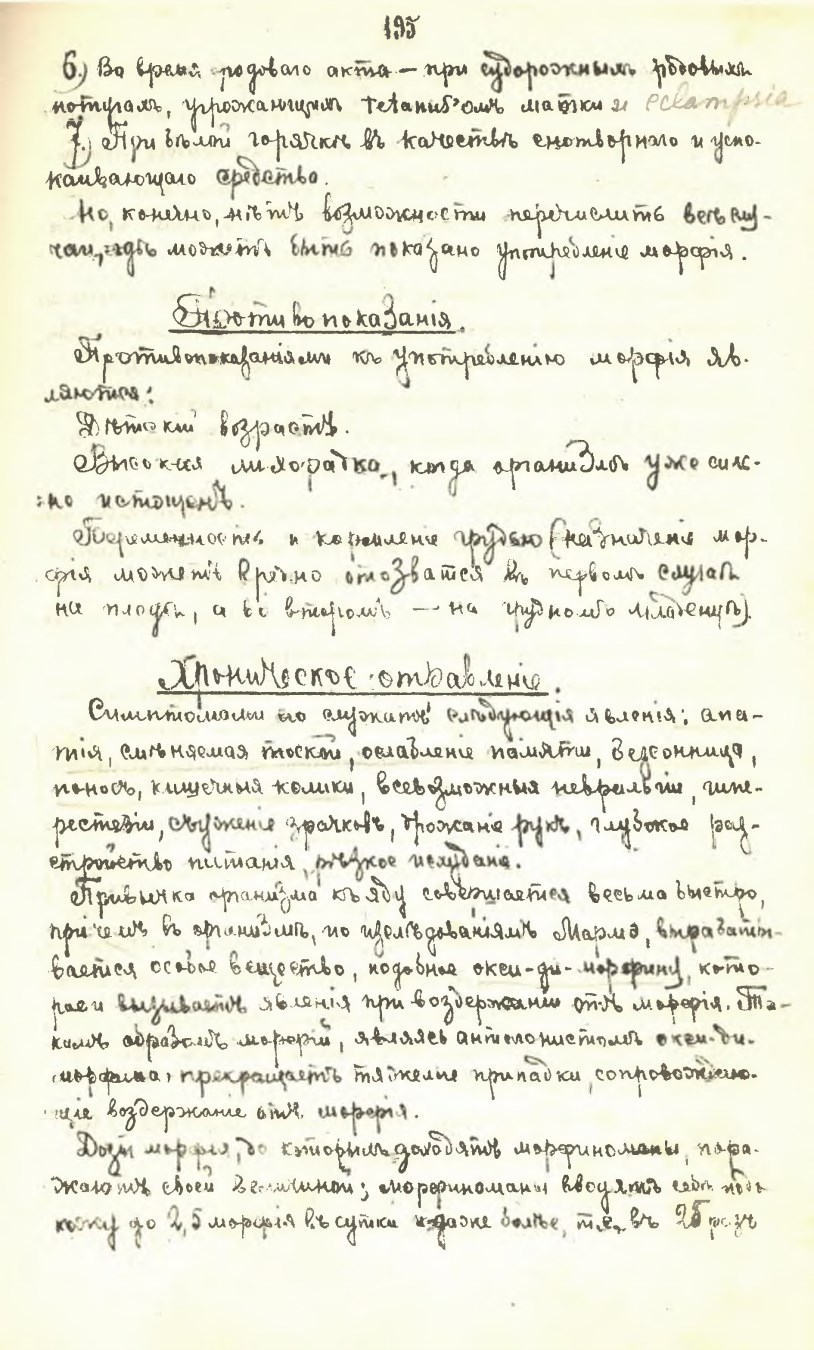 195
6.) Во время родоваго акта — при судорожныхъ родовыхъ
потугахъ, угрожающимъ tetanus'омъ матки и eclampsia
7.) При бѣлой горячкѣ въ качествѣ снотворнаго и успо-
каивающаго средства.
Но, конечно, нѣтъ возможности перечислить всѣ слу-
чаи, гдѣ можетъ быть показано употребленіе морфія.
Противопоказанія.
Противопоказаніями къ употребленію морфія яв-
ляются:
Дѣтскій возрастъ.
Высокая лихорадка, когда организмъ уже силь-
но истощенъ.
Беременность и кормленіе грудью (назначеніе мор-
фія можетъ вредно отозватся въ первомъ случаѣ
на плодѣ, а во второмъ — на грудномъ младенцѣ).
Хроническое отравленіе.
Симптомами его служатъ слѣдующія явленія: апа-
тія, смѣняемая тоской, ослабленіе памяти, безсонница,
поносъ, кишечныя колики, всевозможныя невральгіи, гипе-
рестезіи, съуженіе зрачковъ, дрожаніе рукъ, глубокое раз-
стройство питанія, рѣзкое исхуданіе.
Привычка организма къ яду совершается весьма быстро,
причемъ въ организмѣ, по изслѣдованіямъ Мармэ, вырабаты-
вается особое вещество, подобное окси-ди-морфину, кото-
рое и вызываетъ явленія при воздержаніи отъ морфія. Та-
кимъ образомъ морфій, являясь антагонистомъ окси-ди-
морфина, прекращаетъ тяжелые припадки, сопровождаю-
щіе воздержаніе отъ морфія.
Дозы морфія, до которыхъ доходятъ морфиноманы, пора-
жаютъ своей величиной; морфиноманы вводятъ себѣ подъ
кожу до 2,5 морфія въ сутки и даже болѣе, т.е. въ 25 разъ